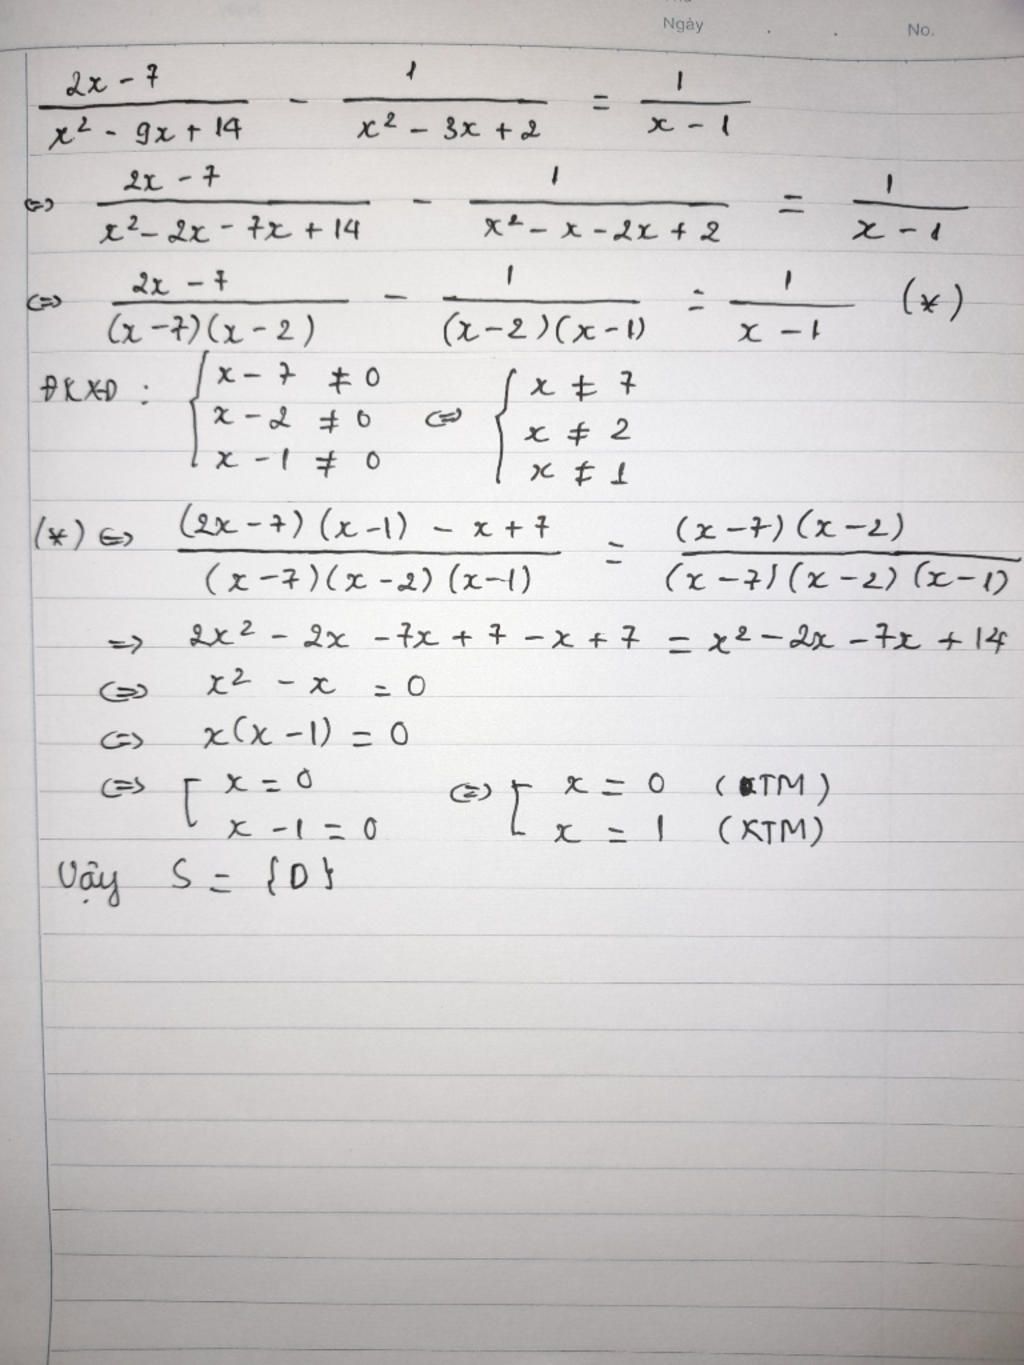 Ngày . . No.
2x - 7 / x² - 9x + 14 - 1 / x² - 3x + 2 = 1 / x - 1
⇔ 2x - 7 / x² - 2x - 7x + 14 - 1 / x² - x - 2x + 2 = 1 / x - 1
⇔ 2x - 7 / (x - 7)(x - 2) - 1 / (x - 2)(x - 1) = 1 / x - 1 (*)
ĐKXĐ : { x - 7 ≠ 0 ⇔ { x ≠ 7
x - 2 ≠ 0 x ≠ 2
x - 1 ≠ 0 x ≠ 1
(*) ⇔ (2x - 7)(x - 1) - x + 7 / (x - 7)(x - 2)(x - 1) = (x - 7)(x - 2) / (x - 7)(x - 2)(x - 1)
⇒ 2x² - 2x - 7x + 7 - x + 7 = x² - 2x - 7x + 14
⇔ x² - x = 0
⇔ x(x - 1) = 0
⇔ [ x = 0 ⇔ [ x = 0 (TM)
x - 1 = 0 x = 1 (KTM)
Vậy S = {0}